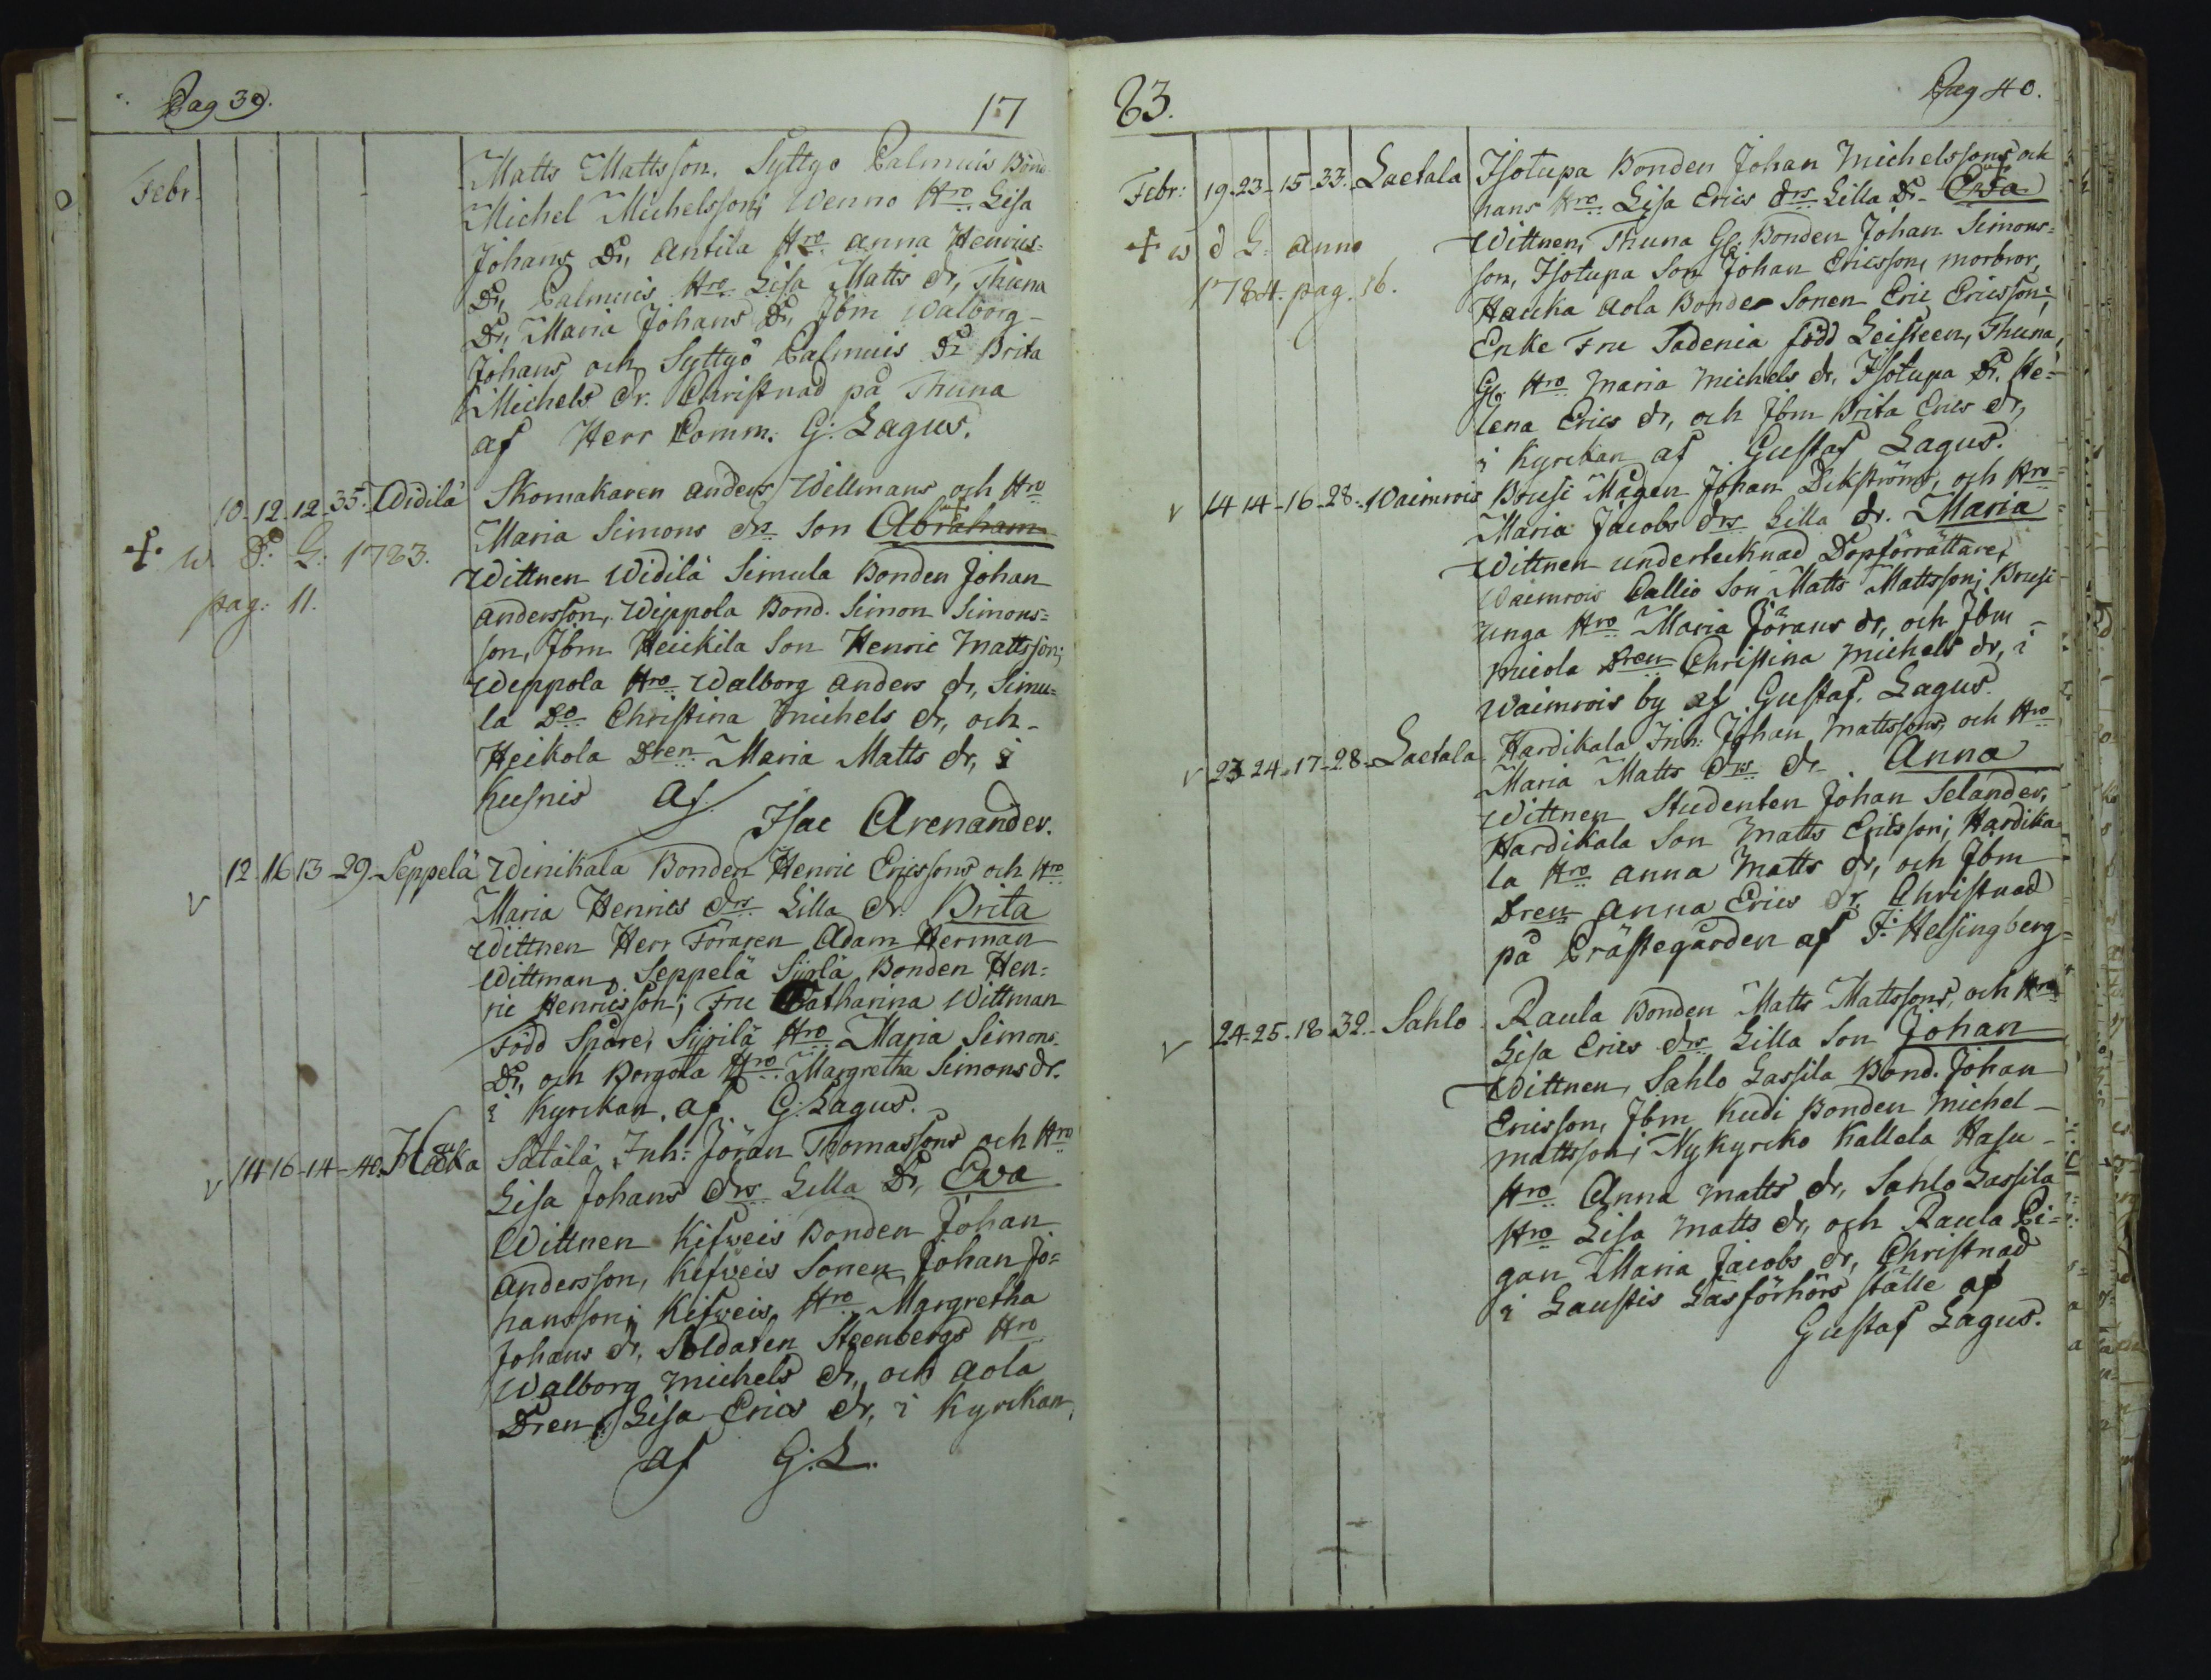 Pag 39.
17
Febr.
Matts Mattsson, Syttyö Palmuis Bond.
Michel Michelsson; Wenno Hro Lisa
Johans Dr, Antila Hro Anna Henrics-
Dr, Palmuis Hro Lisa Matts dr, Thuna
Dr, Maria Johans Dr, Jbm Walborg
Johans och Syttyö Palmuis Dr Brita
Michels dr. Christnad på Thuna
af Herr Comm. G: Lagus.
10-12-12-35. Widilä Skomakaren Anders Willmans och Hro
Maria Simons drs Son Abraham
✢ w. D. G. 1783.
pag. 11.
Wittnen Widilä Simula Bonden Johan
Andersson, Weppola Bond. Simon Simons=
son, Jbm Heickila Son Henric Mattsson;
Weppola Hro Walborg Anders dr, Simu=
la Do Christina Michels dr, och
Heikola Dren Maria Matts dr, i
Kusnis af
Isac Arenander.
v 12-16 13-29-Seppelä Winikala Bonden Henric Ericssons och Hro
Maria Henrics drs Lilla dr. Brita
Wittnen Herr Föraren Adam Herman
Wittman, Seppelä Sijrilä Bonden Hen=
ric Henricsson; Fru Catharina Wittman
född Spåre, Sijrilä Hro Maria Simons
Dr, och Borgola Hro Margretha Simons dr.
i Kyrckan af G. Lagus.
v 14 16-14-40. Hauka Satälä Inh: Jöran Thomassons och Hro
Lisa Johans drs Lilla Dr, Ewa
Wittnen Kifweis Bonden Johan
Andersson, Kifweis Sonen Johan Jo=
hansson; Kifweis Hro Margretha
Johans dr, Soldaten Steenbergs Hro
Walborg Michels dr, och Aola
Dren Lisa Erics dr, i Kyrckan
af G: L.
83.
Pag 40.
Febr: 19-23-15-33. Laetala Isotupa Bonden Johan Michelssons och
hans Hro Lisa Erics drs Lilla Dr Ewa
✢ w d G: Anno
1784. pag. 16.
Wittnen, Thuna Gl. Bonden Johan Simons=
son, Isotupa Son Johan Ericsson, morbror,
Hauka Aola Bonde Sonen Eric Ericsson;
Enke Fru Tadenia född Leisteen, Thuna
Gl. Hro Maria Michels dr, Isotupa Dr. He=
lena Erics dr, och Jbm Brita Erics dr,
i Kyrckan af Gustaf Lagus.
v 14 14-16-28. Waimrois Brusi Mågen Johan Ekströms, och Hro
Maria Jacobs drs Lilla dr. Maria
Wittnen undertecknad Dopförrättare,
Waimrois Callio Son Matts Mattsson; Brusi
unga Hro Maria Jörans dr, och Jbm
Micola Dren Christina Michels dr, i
Waimrois by af Gustaf Lagus.
v 23 24-17-28-Laetala Hardikala Inh: Johan Mattssons, och Hro
Maria Matts drs dr Anna
Wittnen Studenten Johan Selander,
Hardikala Son Matts Ericsson; Hardika
la Hro Anna Matts dr, och Jbm
Dren Anna Erics dr. Christnad
på Prästegården af J: Helsingberg
v 24-25-18 32-Sahlo Raula Bonden Matts Mattssons, och Hro
Lisa Erics drs Lilla Son Johan
Wittnen, Sahlo Lassila Bond. Johan
Ericsson, Jbm Kudi Bonden Michel
Mattsson; Nykyrcko Kallela Hasu
Hro Anna Matts dr, Sahlo Lassila
Hro Lisa Matts dr, och Raula Pi=
gan Maria Jacobs dr, Christnad
i Laustis Läsförhörs ställe af
Gustaf Lagus.